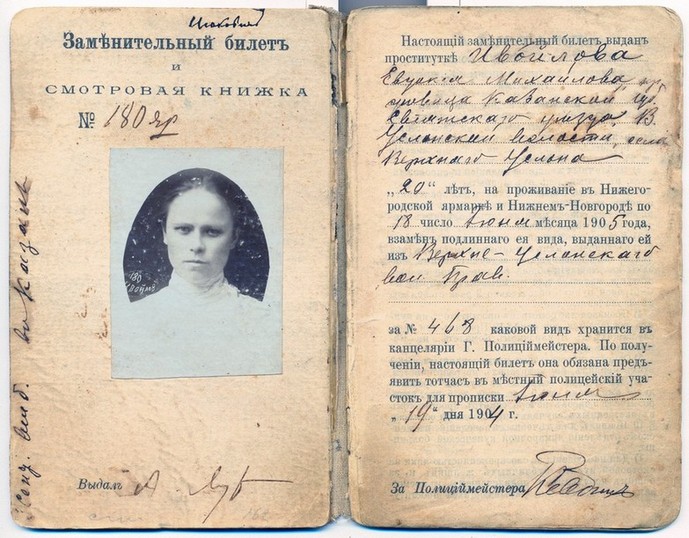 Замѣнительный билетъ
и
СМОТРОВАЯ КНИЖКА
№ 180 яр
180
Выдалъ
въ Казань
Настоящій замѣнительный билетъ выданъ
проституткѣ Ивойлова
Евдокія Михайлова
Казанской гу.
Свіяжскаго уѣзда, В.
Услонской волости, села
Верхняго Услона
„20“ лѣтъ, на проживаніе въ Нижего-
родской ярмаркѣ и Нижнемъ-Новгородѣ по
18 число Іюня мѣсяца 1905 года,
взамѣнъ подлиннаго ея вида, выданнаго ей
изъ Верхне-Услонскаго
вол. Прав.
за № 468 каковой видъ хранится въ
канцеляріи Г. Полиціймейстера. По полу-
ченіи, настоящій билетъ она обязана предъ-
явить тотчасъ въ мѣстный полицейскій уча-
стокъ для прописки Іюня
„19“ дня 1904 г.
За Полиціймейстера